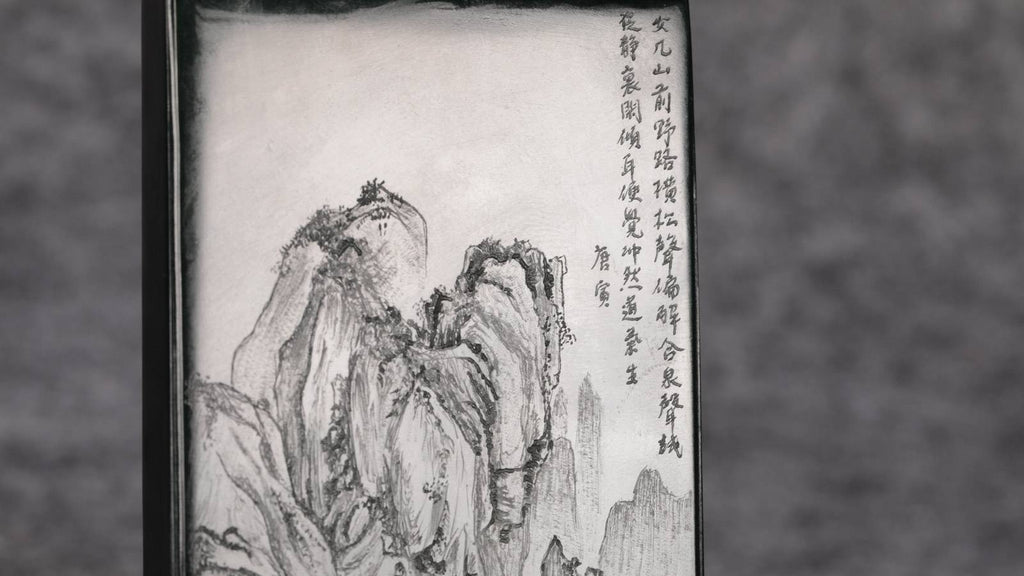 女几山前野路橫松聲偏解合泉聲試
從靜裏閒傾耳便覺冲然道氣生
唐寅